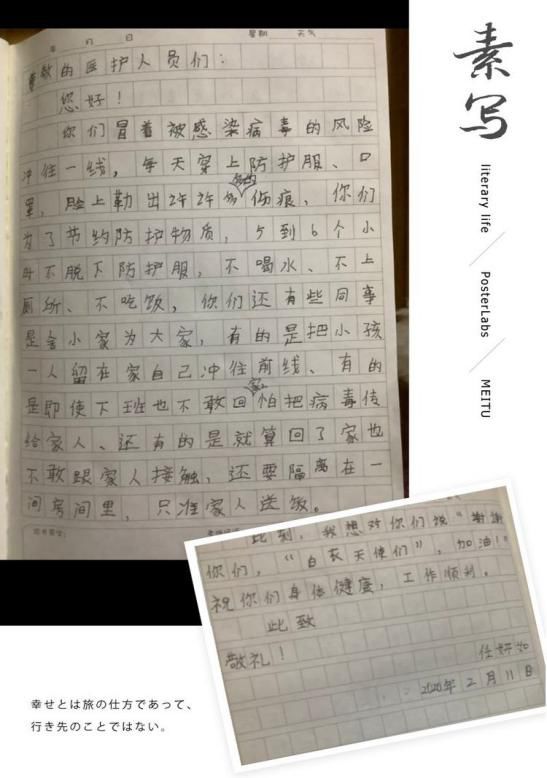 年 月 日 星期 天气
尊敬的医护人员们：
您好！
你们冒着被感染病毒的风险
冲往一线，每天穿上防护服、口
罩，脸上勒出许许多多的伤痕，你们
为了节约防护物质，5到6个小
时不脱下防护服，不喝水、不上
厕所、不吃饭，你们还有些同事
是舍小家为大家，有的是把小孩
一人留在家自己冲往前线、有的
是即使下班也不敢回家怕把病毒传
给家人、还有的是就算回了家也
不敢跟家人接触，还要隔离在一
间房间里，只准家人送饭。
此刻，我想对你们说“谢谢
你们，“白衣天使们”，加油！”
祝你们身体健康，工作顺利。
此致
敬礼！
任好如
2020年2月11日
素写
literary life
PosterLabs
MEITU
幸せとは旅の仕方であって、
行き先のことではない。